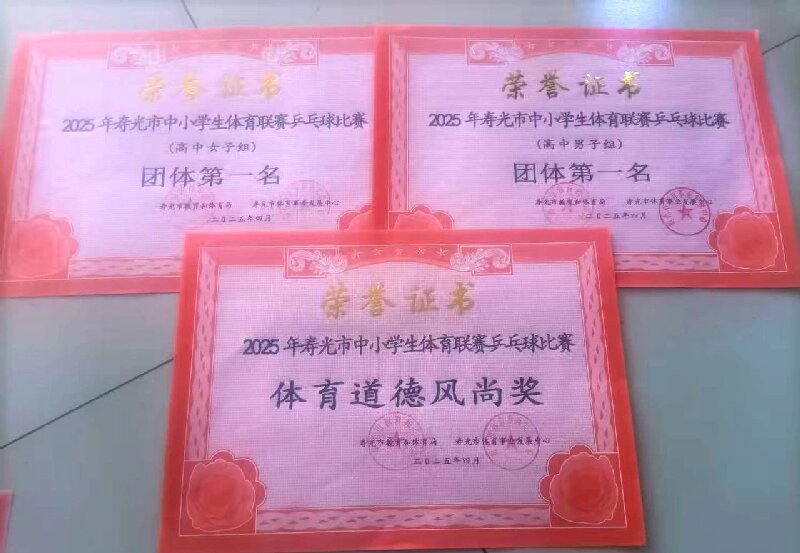 荣誉证书
2025年寿光市中小学生体育联赛乒乓球比赛
(高中女子组)
团体第一名
寿光市教育和体育局 寿光市体育事业发展中心
二〇二五年四月
荣誉证书
2025年寿光市中小学生体育联赛乒乓球比赛
(高中男子组)
团体第一名
寿光市教育和体育局 寿光市体育事业发展中心
二〇二五年四月
荣誉证书
2025年寿光市中小学生体育联赛乒乓球比赛
体育道德风尚奖
寿光市教育和体育局 寿光市体育事业发展中心
二〇二五年四月